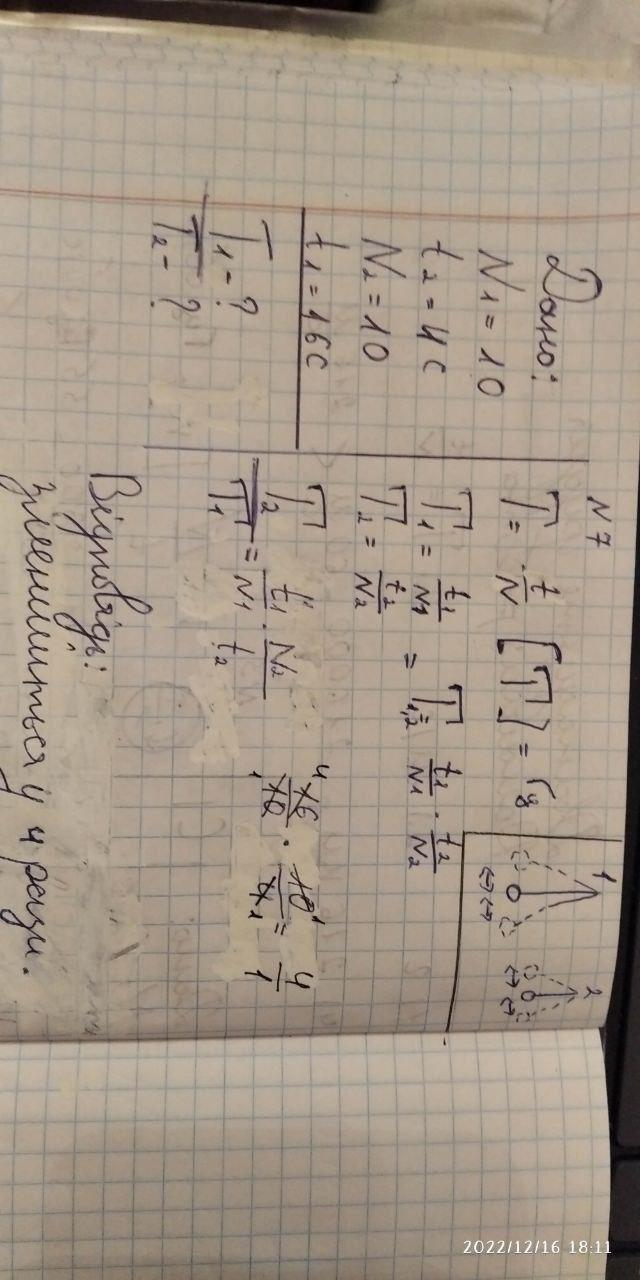 N 7
Дано:
N₁ = 10
t₂ = 4 с
N₂ = 10
t₁ = 16 с
T₁ - ?
T₂ - ?
T = t/N [T] = Гц
T₁ = t₁/N₁ = T₁,₂ = t₁/N₁ · t₂/N₂
T₂ = t₂/N₂
T₂/T₁ = t₁/N₁ · N₂/t₂ 16/10 · 10/4 = 4/1
1 2
Відповідь:
зменшиться у 4 рази.
2022/12/16 18:11